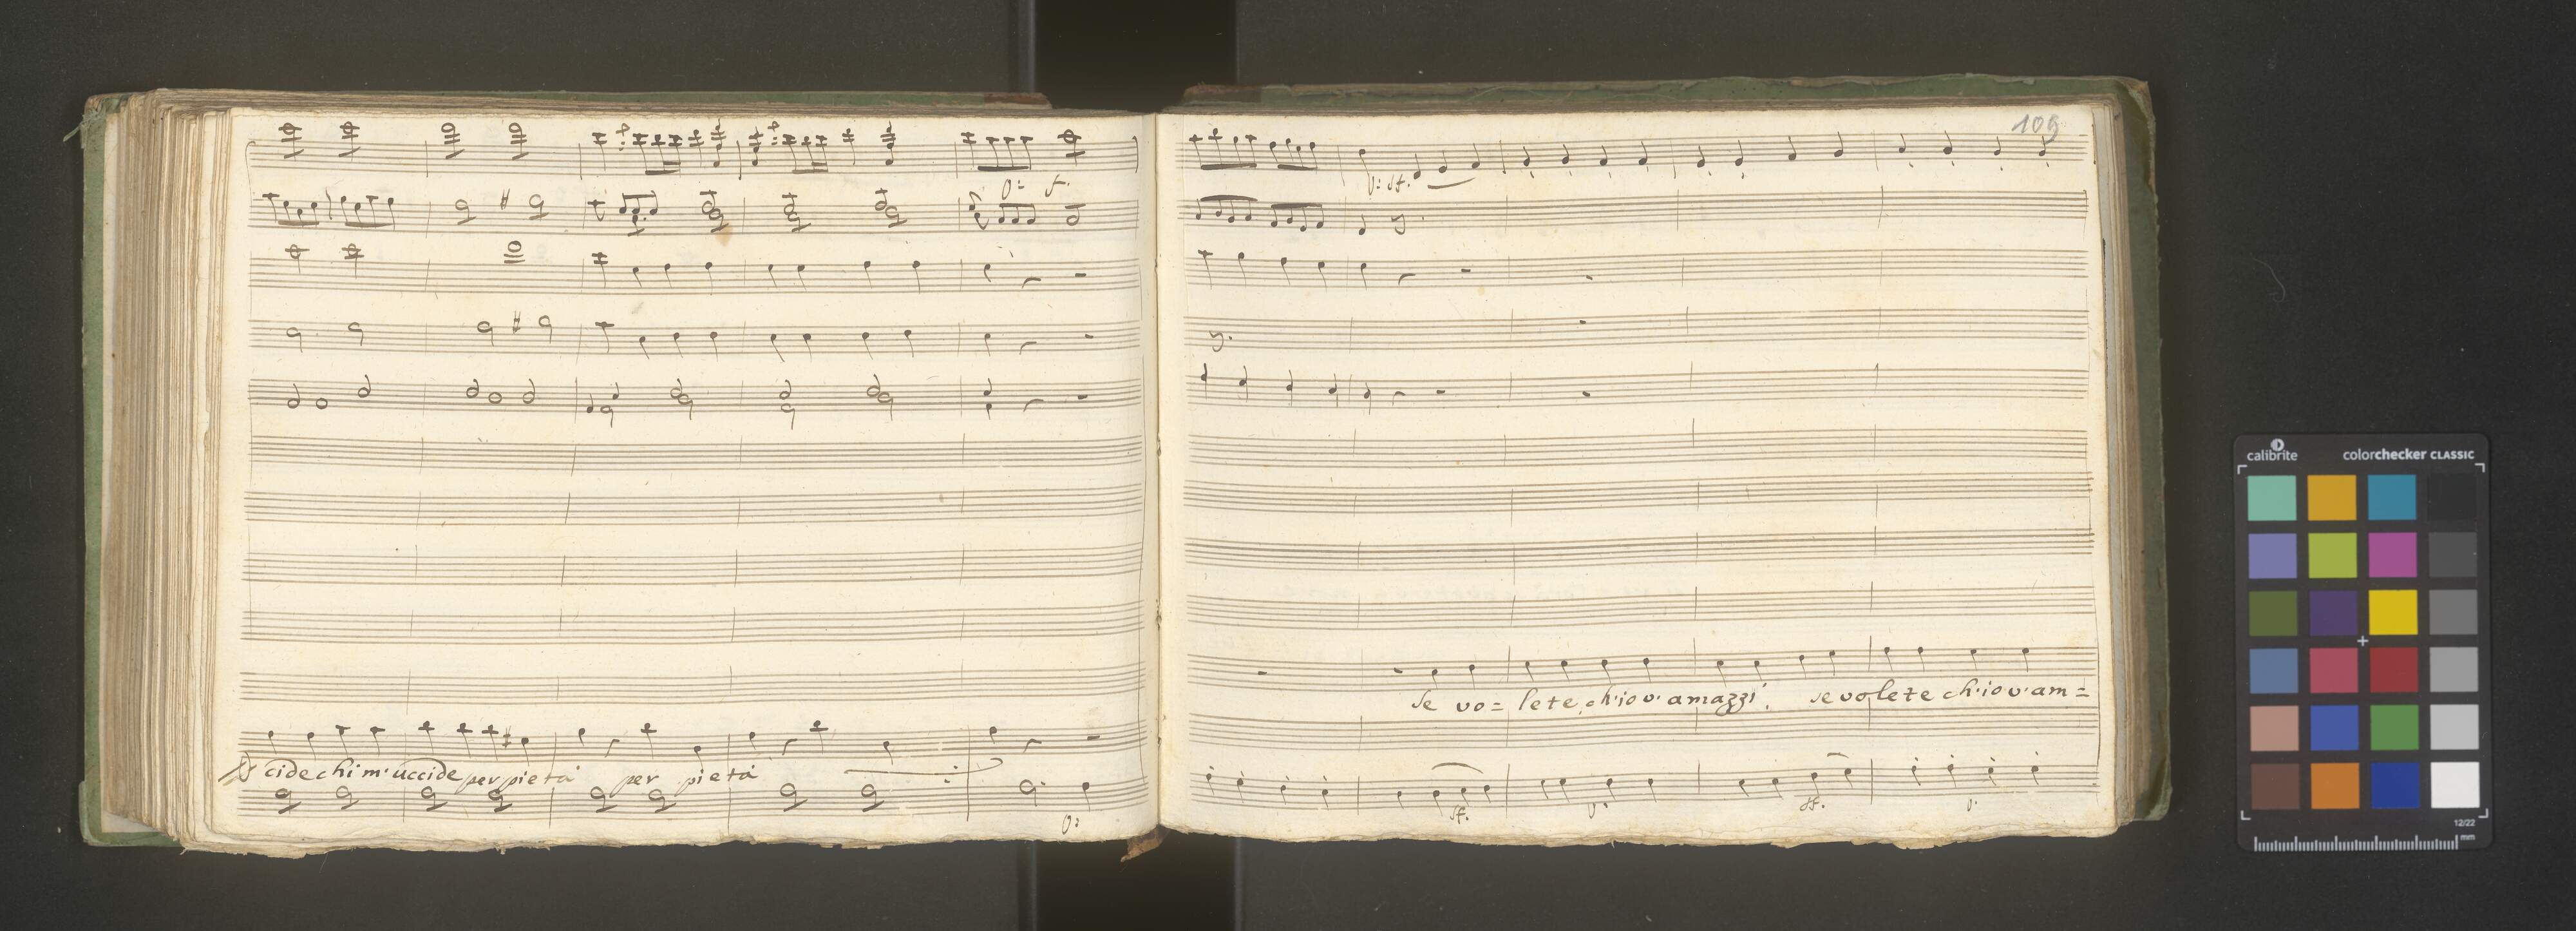 cide chi m'uccide per pietà per pietà
f.
109
sf.
Se vo= lete ch'io v'amazzi, se volete ch'io v'am=
sf. sf.
calibrite colorchecker CLASSIC
12/22
mm